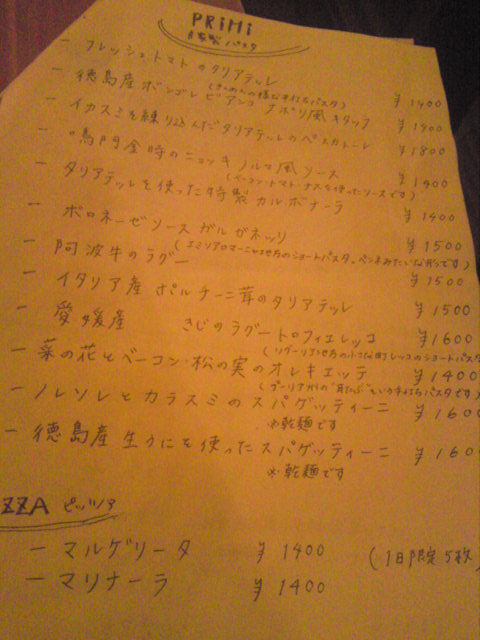 PRiMi
自家製パスタ
ー フレッシュトマトのタリアテッレ ¥1400
(きしめんの様な手打ちパスタ)
ー 徳島産ボンゴレビアンコ ナポリ風キタッラ ¥1400
ー イカスミを練り込んだタリアテッレのペスカトーレ ¥1800
ー 鳴門金時のニョッキ ノルマ風ソース ¥1400
(ベーコン・トマト・ナスを使ったソースです)
ー タリアテッレを使った特製カルボナーラ ¥1400
ー ボロネーゼソース ガルガネッリ ¥1500
(エミリアロマーニャ地方のショートパスタ。ペンネみたいな形です)
ー 阿波牛のラグー ¥1500
ー イタリア産ポルチーニ茸のタリアテッレ ¥1500
ー 愛媛産 きじのラグー トロフィエレッコ ¥1600
(リグーリア地方の小さな町レッコのショートパスタ
ー 菜の花とベーコン・松の実のオレキエッテ ¥1400
(プーリア州の"耳たぶ"という手打ちパスタです)
ー ノレソレとカラスミのスパゲッティーニ ¥1600
※乾麺です
ー 徳島産生うにを使ったスパゲッティーニ ¥1600
※乾麺です
ZZA ピッツァ
ー マルゲリータ ¥1400 (1日限定5枚)
ー マリナーラ ¥1400